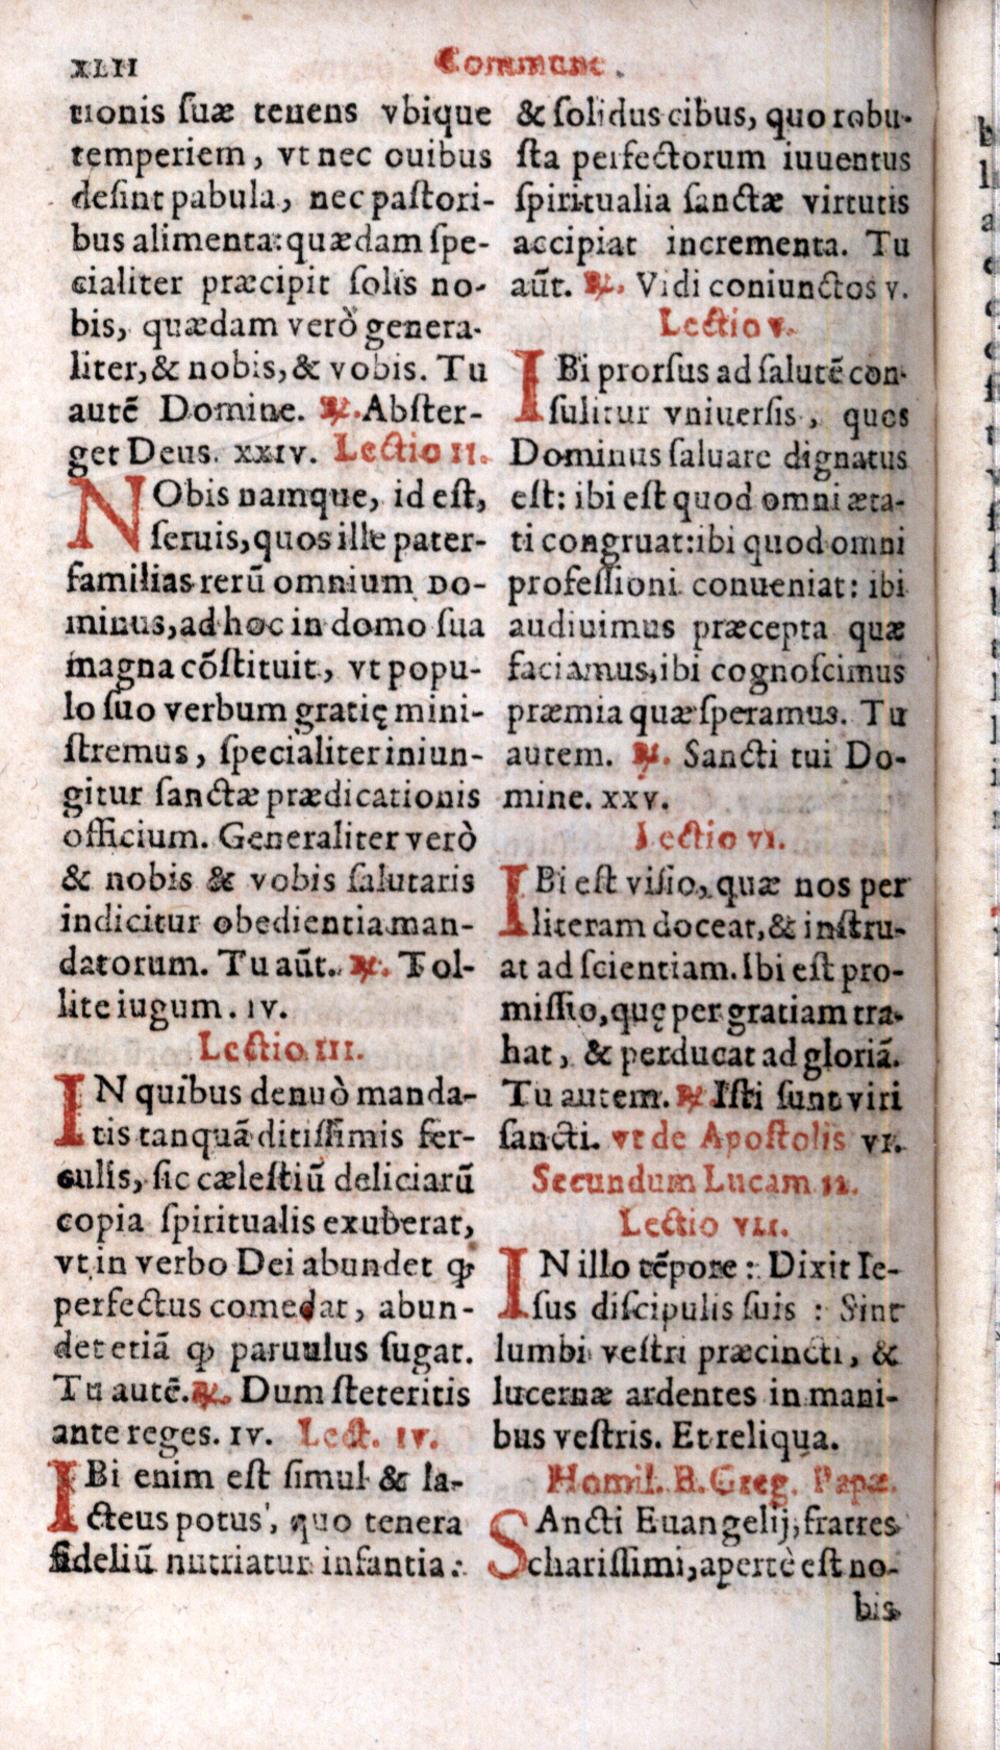 XLII
Commune.
tionis ſuæ tenens vbique
temperiem, vt nec ouibus
deſint pabula, nec paſtori-
bus alimenta: quædam ſpe-
cialiter præcipit ſolis no-
bis, quædam verò genera-
liter, & nobis, & vobis. Tu
autē Domine. ℟. Abſter-
get Deus. XXIV. Lectio II.
NObis namque, id eſt,
ſeruis, quos ille pater-
familias rerū omnium Do-
minus, ad hoc in domo ſua
magna cōſtituit, vt popu-
lo ſuo verbum gratię mini-
ſtremus, ſpecialiter iniun-
gitur ſanctæ prædicationis
officium. Generaliter verò
& nobis & vobis ſalutaris
indicitur obedientia man-
datorum. Tu aūt. ℟. Tol-
lite iugum. IV.
Lectio III.
IN quibus denuò manda-
tis tanquā ditiſſimis fer-
culis, ſic cæleſtiū deliciarū
copia ſpiritualis exuberat,
vt in verbo Dei abundet ꝙ
perfectus comedat, abun-
det etiā ꝙ paruulus ſugat.
Tu autē. ℟. Dum ſteteritis
ante reges. IV. Lect. IV.
IBi enim eſt ſimul & la-
cteus potus, quo tenera
fideliū nutriatur infantia:
& ſolidus cibus, quo robu-
ſta perfectorum iuuentus
ſpiritualia ſanctæ virtutis
accipiat incrementa. Tu
aūt. ℟. Vidi coniunctos v.
Lectio v.
IBi prorſus ad ſalutē con-
ſulitur vniuerſis, quos
Dominus ſaluare dignatus
eſt: ibi eſt quod omni æta-
ti congruat: ibi quod omni
profeſſioni conueniat: ibi
audiuimus præcepta quæ
faciamus, ibi cognoſcimus
præmia quæ ſperamus. Tu
autem. ℟. Sancti tui Do-
mine. XXV.
Lectio VI.
IBi eſt viſio, quæ nos per
literam doceat, & inſtru-
at ad ſcientiam. Ibi eſt pro-
miſſio, quę per gratiam tra-
hat, & perducat ad gloriā.
Tu autem. ℟ Iſti ſunt viri
ſancti. vt de Apoſtolis VI.
Secundum Lucam 12.
Lectio VII.
IN illo tēpore: Dixit Ie-
ſus diſcipulis ſuis: Sint
lumbi veſtri præcincti, &
lucernæ ardentes in mani-
bus veſtris. Et reliqua.
Homil. B. Greg. Papæ.
SAncti Euangelij, fratres
chariſſimi, apertè eſt no-
bis